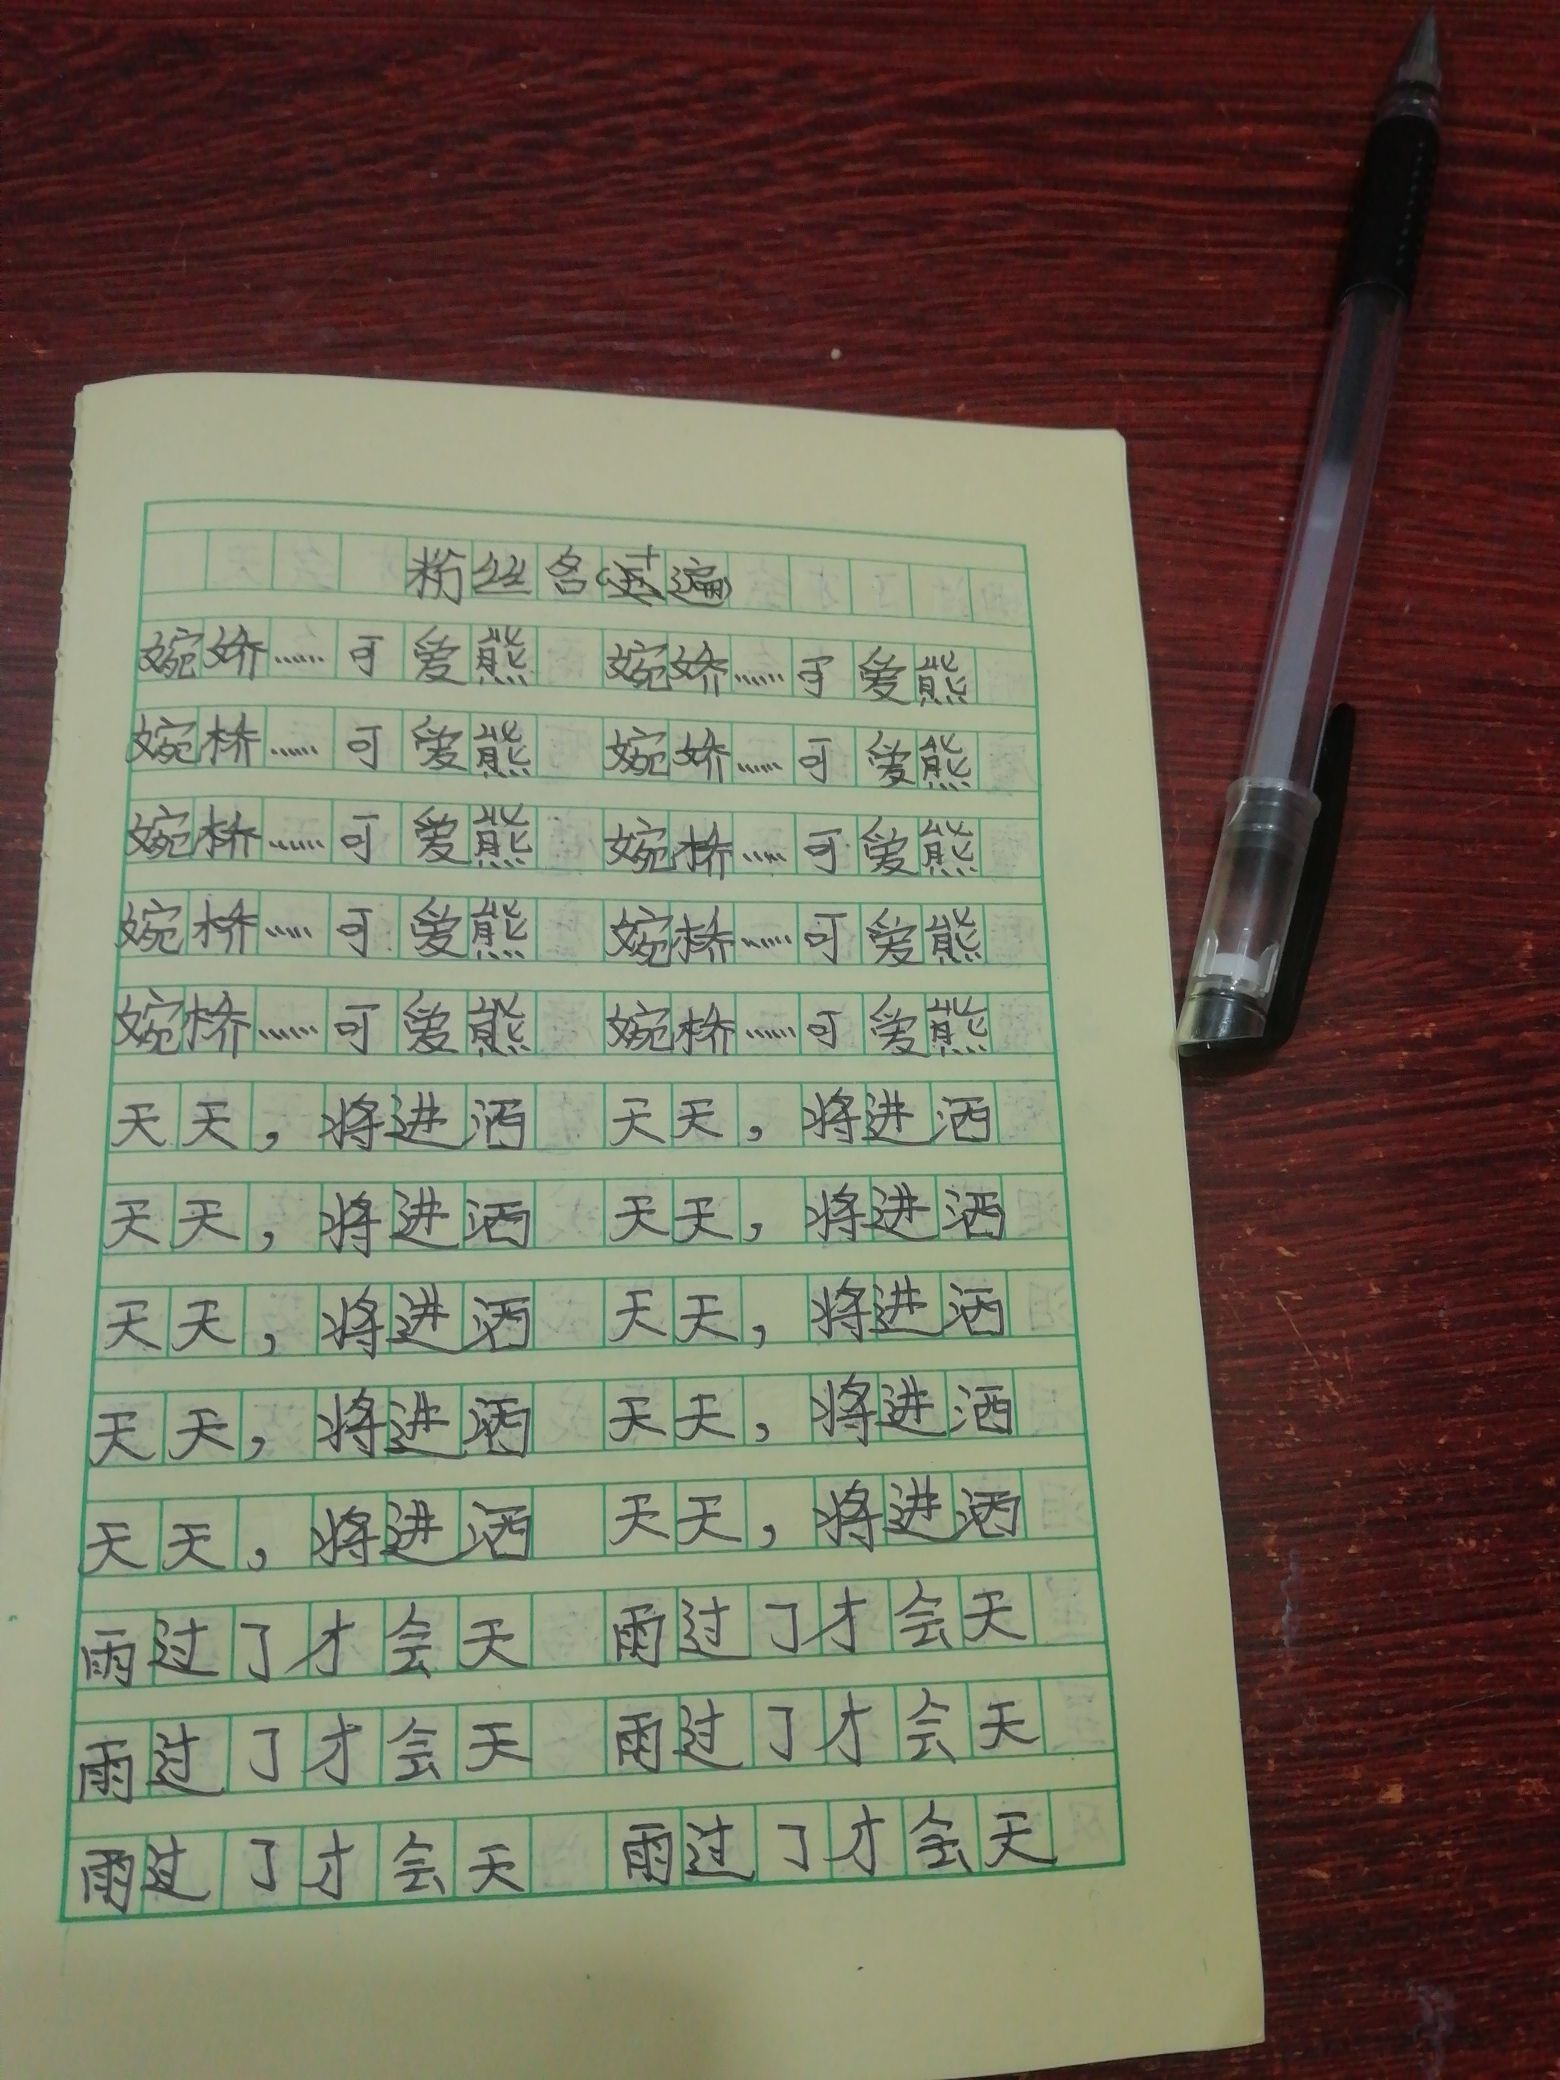 粉丝名(十遍)
婉娇……可爱熊 婉娇……可爱熊
婉桥……可爱熊 婉娇……可爱熊
婉桥……可爱熊 婉桥……可爱熊
婉桥……可爱熊 婉桥……可爱熊
婉桥……可爱熊 婉桥……可爱熊
天天，将进洒 天天，将进洒
天天，将进洒 天天，将进洒
天天，将进洒 天天，将进洒
天天，将进洒 天天，将进洒
天天，将进洒 天天，将进洒
雨过了才会天 雨过了才会天
雨过了才会天 雨过了才会天
雨过了才会天 雨过了才会天